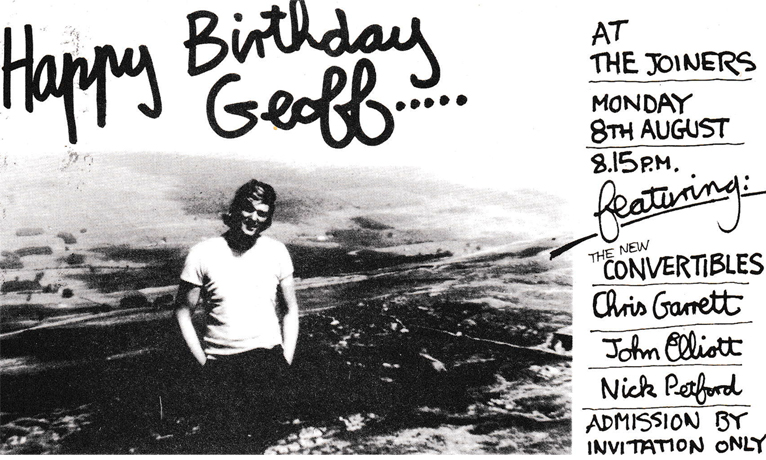 Happy Birthday
Geoff.....
AT
THE JOINERS
MONDAY
8TH AUGUST
8.15 P.M.
featuring:
THE NEW
CONVERTIBLES
Chris Garrett
John Elliott
Nick Petford
ADMISSION BY
INVITATION ONLY